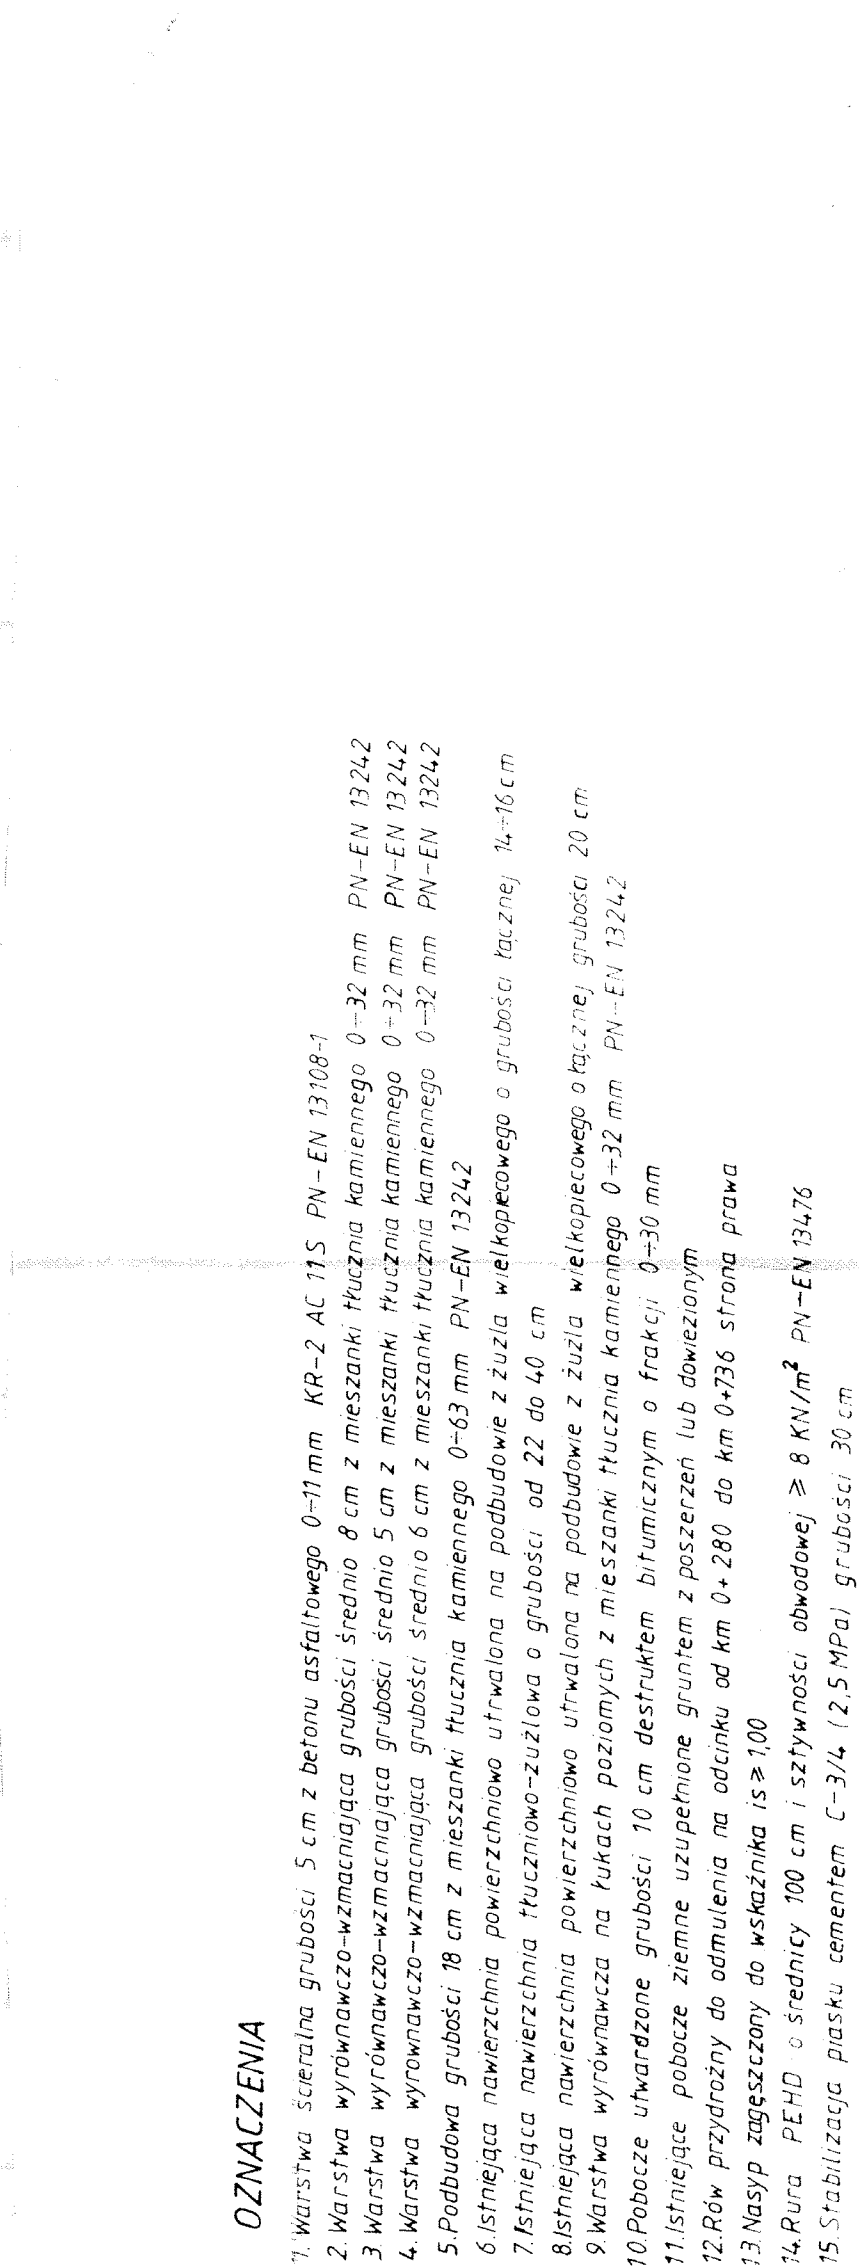 OZNACZENIA
1. Warstwa ścieralna grubości 5 cm z betonu asfaltowego 0÷11 mm KR-2 AC 11S PN-EN 13108-1
2. Warstwa wyrównawczo-wzmacniająca grubości średnio 8 cm z mieszanki tłucznia kamiennego 0÷32 mm PN-EN 13242
3. Warstwa wyrównawczo-wzmacniająca grubości średnio 5 cm z mieszanki tłucznia kamiennego 0÷32 mm PN-EN 13242
4. Warstwa wyrownawczo-wzmacniająca grubości średnio 6 cm z mieszanki tłucznia kamiennego 0÷32 mm PN-EN 13242
5. Podbudowa grubości 18 cm z mieszanki tłucznia kamiennego 0÷63 mm PN-EN 13242
6. Istniejąca nawierzchnia powierzchniowo utrwalona na podbudowie z żużla wielkopiecowego o grubości łącznej 14÷16 cm
7. Istniejąca nawierzchnia tłuczniowo-zużlowa o grubości od 22 do 40 cm
8. Istniejąca nawierzchnia powierzchniowo utrwalona na podbudowie z żużla wielkopiecowego o łącznej grubości 20 cm
9. Warstwa wyrównawcza na łukach poziomych z mieszanki tłucznia kamiennego 0÷32 mm PN-EN 13242
10. Pobocze utwardzone grubości 10 cm destruktem bitumicznym o frakcji 0÷30 mm
11. Istniejące pobocze ziemne uzupełnione gruntem z poszerzeń lub dowiezionym
12. Rów przydrożny do odmulenia na odcinku od km 0+280 do km 0+736 strona prawa
13. Nasyp zagęszczony do wskaźnika is ≥ 1,00
14. Rura PEHD o średnicy 100 cm i sztywności obwodowej ≥ 8 KN/m² PN-EN 13476
15. Stabilizacja piasku cementem C-3/4 (2,5 MPa) grubości 30 cm